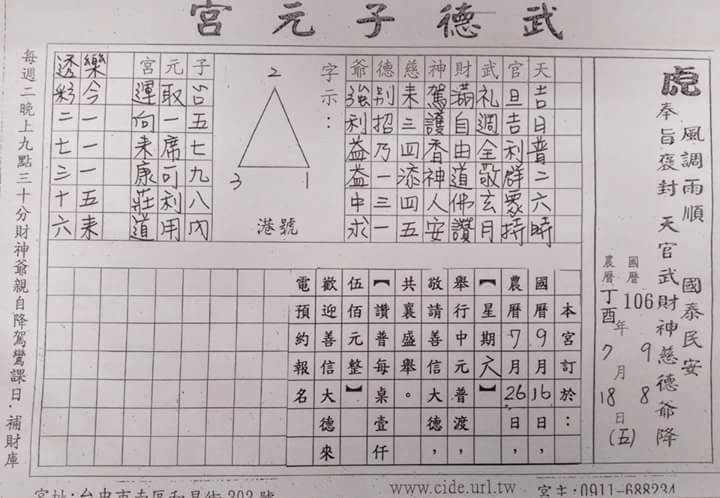 武德子元宮
虎
風調雨順　國泰民安
奉旨褒封　天官武財神慈德爺降
國曆 106 年 9 月 8 日
農曆丁酉年 7 月 18 日(五)
天官武財神慈德爺
字示：
吉日普二六時
旦吉利群眾持
礼週全敬玄月
滿自由道佛讚
駕護香神人安
未三四添四五
别招乃一三一
強利益益中求
2
3
1
港號
子元宮
五七九八
取一席可利用
運向未康莊道
樂今一一一五未
透彩二七三十六
本宮訂於：
國曆9月16日，
農曆7月26日，
【星期六】
舉行中元普渡，
敬請善信大德，
共襄盛舉。
【讚普每桌壹仟
伍佰元整】
歡迎善信大德來
電預約報名
每週二晚上九點三十分財神爺親自降駕鸞課日．補財庫
www.cide.url.tw
宮主:0911-688234